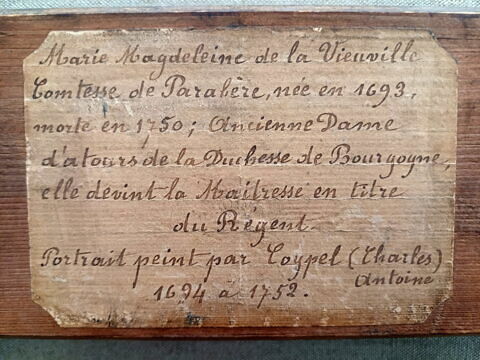 Marie Magdeleine de la Vieuville
Comtesse de Parabère, née en 1693,
morte en 1750; Ancienne Dame
d'atours de la Duchesse de Bourgogne,
elle devint la Maitresse en titre
du Régent.
Portrait peint par Coypel (Charles)
Antoine
1694 a 1752.